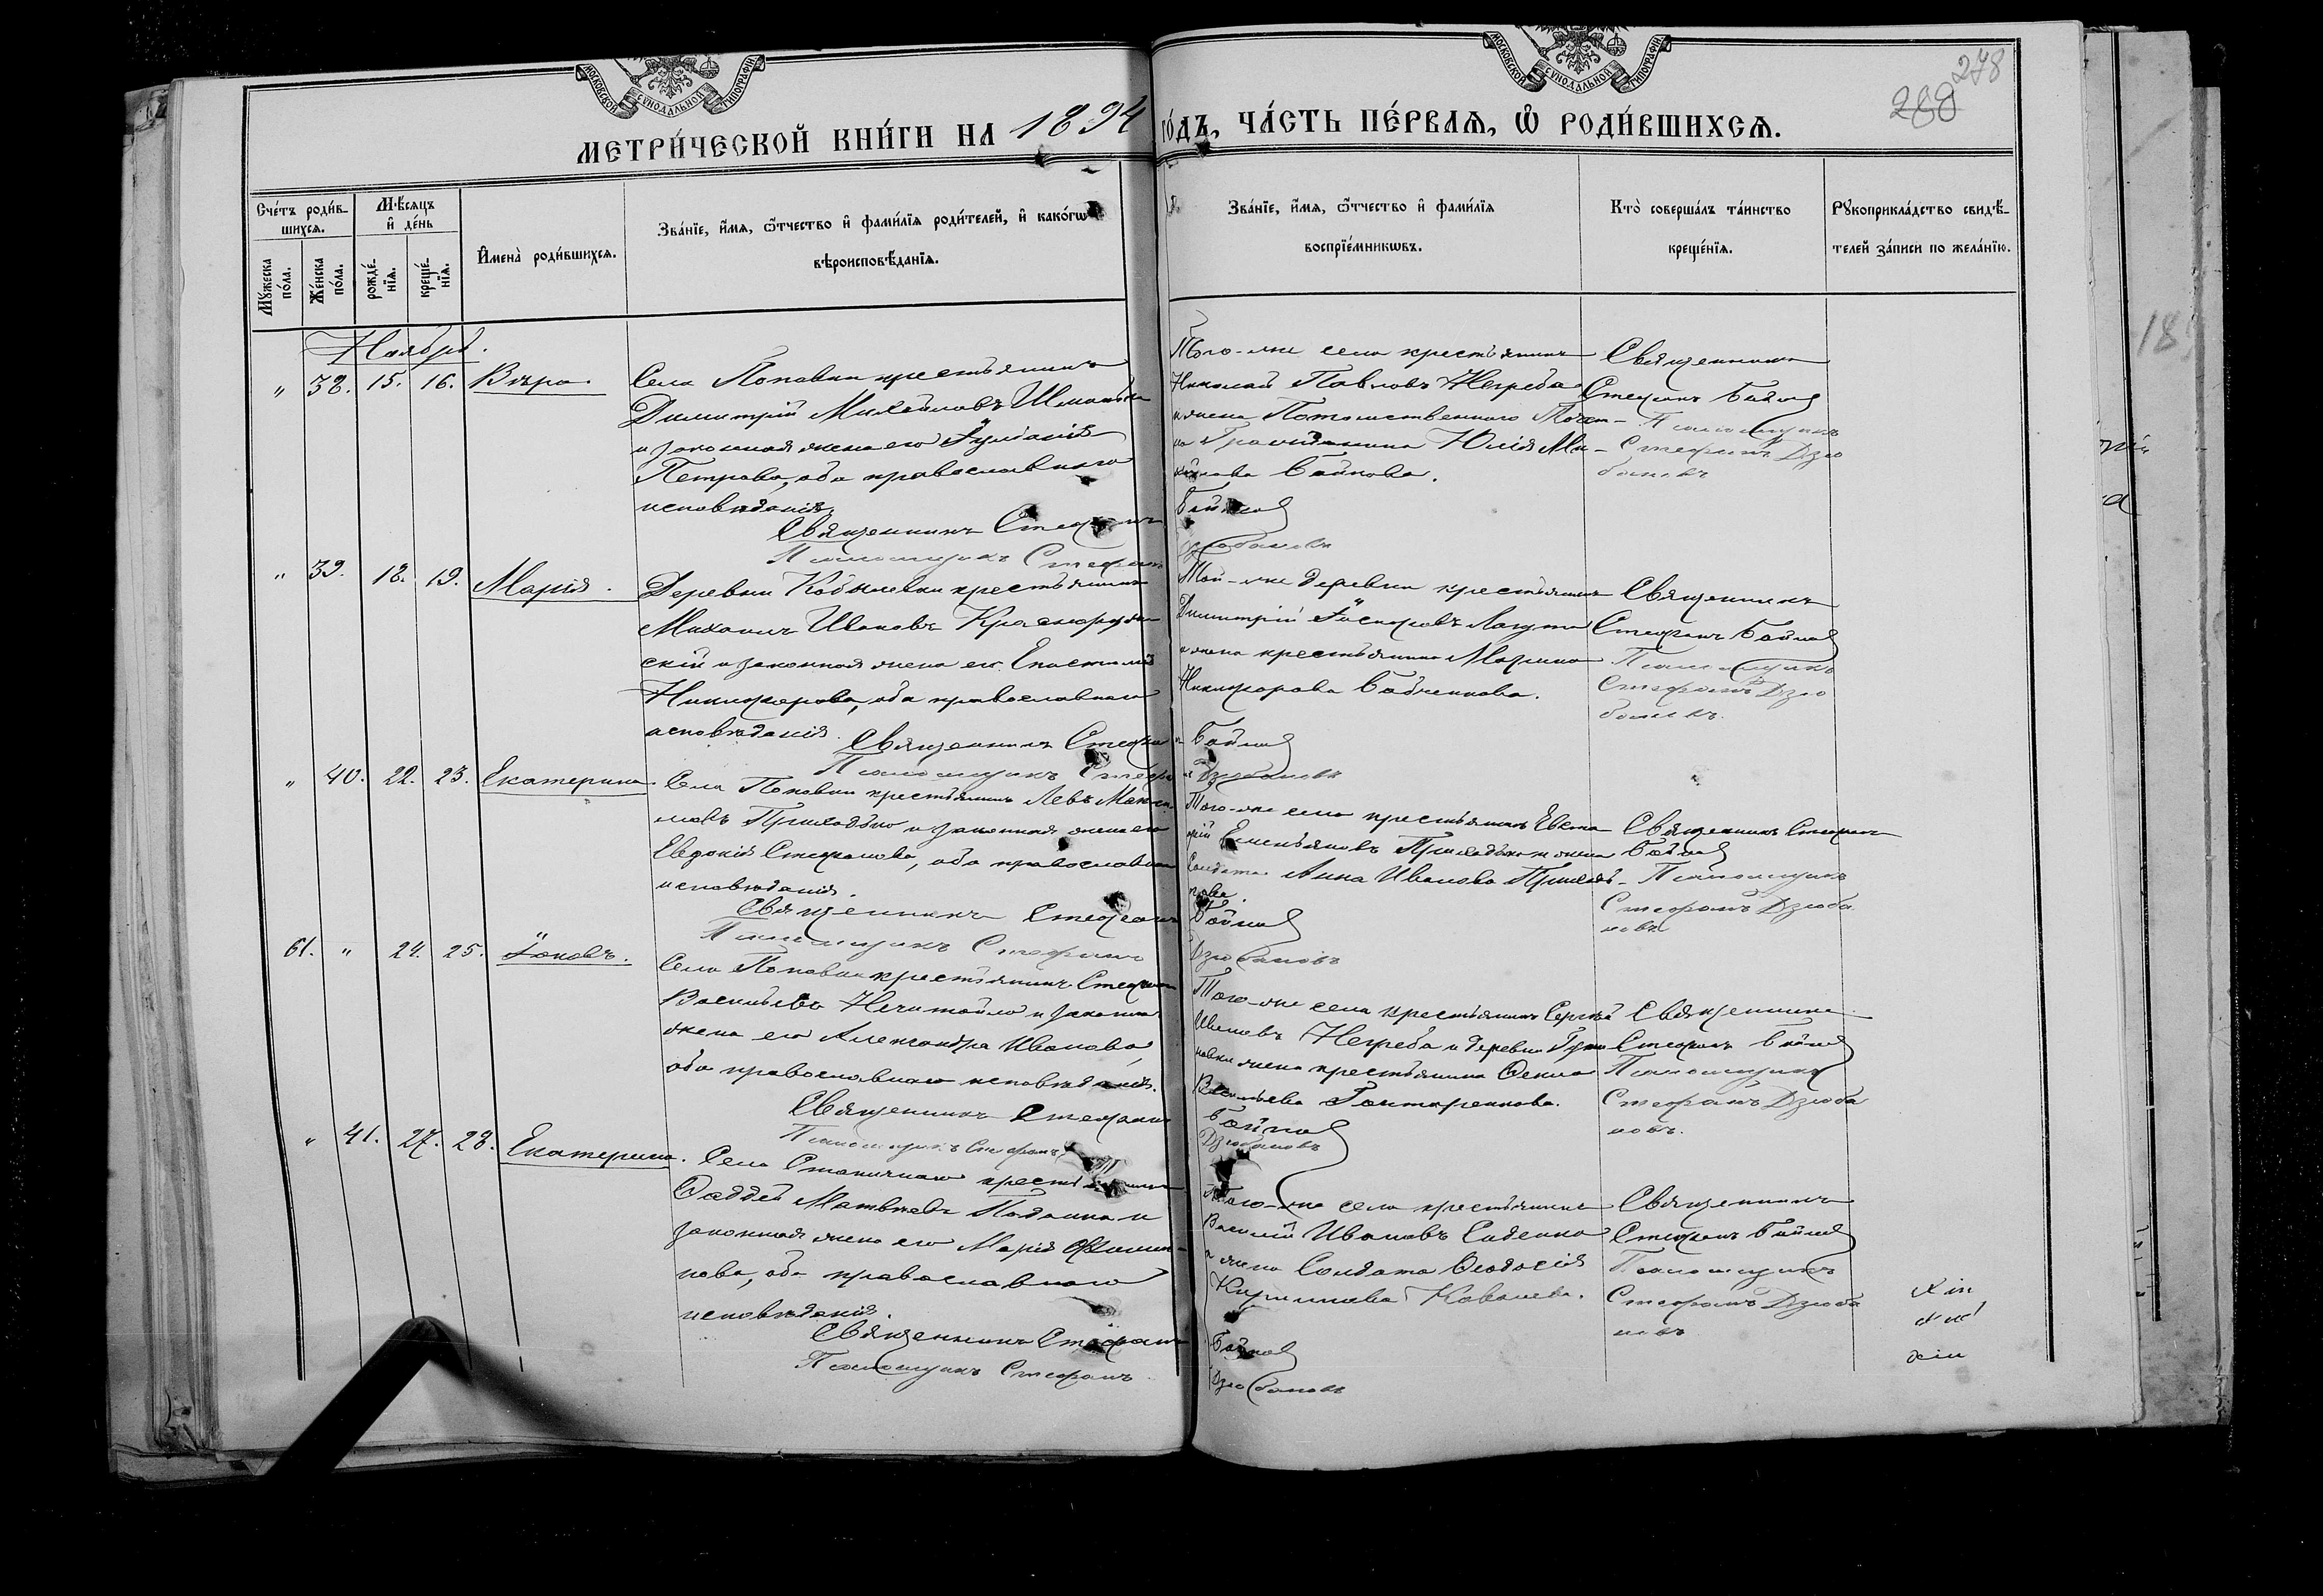 МОСКОВСКОЙ СѴНОДАЛЬНОЙ ТИПОГРАФІИ
МОСКОВСКОЙ СѴНОДАЛЬНОЙ ТИПОГРАФІИ
278
288
МЕТРИ́ЧЕСКОЙ КНИ́ГИ НА 1894 ГО́ДЪ, ЧА́СТЬ ПЕ́РВАѦ, Ѡ҆ РОДИ́ВШИХСѦ.
Сче́тъ роди́в-
шихсѧ.
Мꙋ́жеска по́ла.
Же́нска по́ла.
Мѣ́сѧцъ и҆ де́нь
рожде́-нїѧ.
креще́-нїѧ.
И҆мена̀ роди́вшихсѧ.
Зва́нїе, и҆́мѧ, ѻ҆́тчество и҆ фами́лїѧ роди́телей, и҆ како́гѡ
вѣроисповѣ́данїѧ.
Зва́нїе, и҆́мѧ, ѻ҆́тчество и҆ фами́лїѧ
воспрїе́мникѡвъ.
Кто̀ соверша́лъ та́инство
креще́нїѧ.
Рꙋкоприкла́дство свидѣ́-
телей за́писи по жела́нїю.
Ноябрь.
" 38. 15. 16. Вѣра.
Села Поповки крестьянинъ
Димитрій Михайловъ
и законная жена его Іуліанія
Петрова, оба православнаго
исповѣданія.
Священникъ Стефанъ Бойко
Псаломщикъ Стефанъ Дзюбановъ
Того-же села крестьянинъ
Николай Павловъ Негреба
и жена Потомственнаго Почет-
на Гражданина Юлія Ми-
хайлова Бойкова.
Священникъ
Стефанъ Бойко
Псаломщикъ
Стефанъ Дзю
бановъ
" 39. 18. 19. Марія.
Деревни Кобылевки крестьянинъ
Михаилъ Ивановъ
скій и законная жена его Епистимія
Никифорова, оба православнаго
исповѣданія.
Священникъ Стефанъ Бойко
Псаломщикъ Стефанъ Дзюбановъ
Той-же деревни крестьянинъ
Димитрій Іосифовъ
и жена крестьянина Марина
Никифорова Бабченкова.
Священникъ
Стефанъ Бойко
Псаломщикъ
Стефанъ Дзю
бановъ.
" 40. 22. 23. Екатерина.
Села Поповки крестьянинъ Левъ Макси-
мовъ Приходько и законная жена его
Евдокія Стефанова, оба православнаго
исповѣданія.
Священникъ Стефанъ Бойко
Псаломщикъ Стефанъ Дзюбановъ
Того-же села крестьянинъ Евста-
фій Емельяновъ Приходько и жена
Солдата Анна Иванова Приходь-
кова.
Священникъ Стефанъ
Бойко
Псаломщикъ
Стефанъ Дзюба
новъ
61. " 24. 25. Іаковъ.
Села Поповки крестьянинъ Стефанъ
Васильевъ Нечитайло и законная
жена его Александра Иванова,
оба православнаго исповѣданія.
Священникъ Стефанъ Бойко
Псаломщикъ Стефанъ Дзюбановъ
Того-же села крестьянинъ Сергѣй
Ивановъ Негреба и деревни
новки жена крестьянина Ѳекла
Васильева Гонтаренкова.
Священникъ
Стефанъ Бойко
Псаломщикъ
Стефанъ Дзюба
новъ.
" 41. 27. 28. Екатерина.
Села Станичнаго крестьянинъ
Ѳаддей Матвѣевъ и
законная жена его Марія Филип-
пова, оба православнаго
исповѣданія.
Священникъ Стефанъ Бойко
Псаломщикъ Стефанъ Дзюбановъ
Того-же села крестьянинъ
Василій Ивановъ Сиденко
и жена Солдата Ѳеодосія
Кириллова Ковалева.
Священникъ
Стефанъ Бойко
Псаломщикъ
Стефанъ Дзюба
новъ